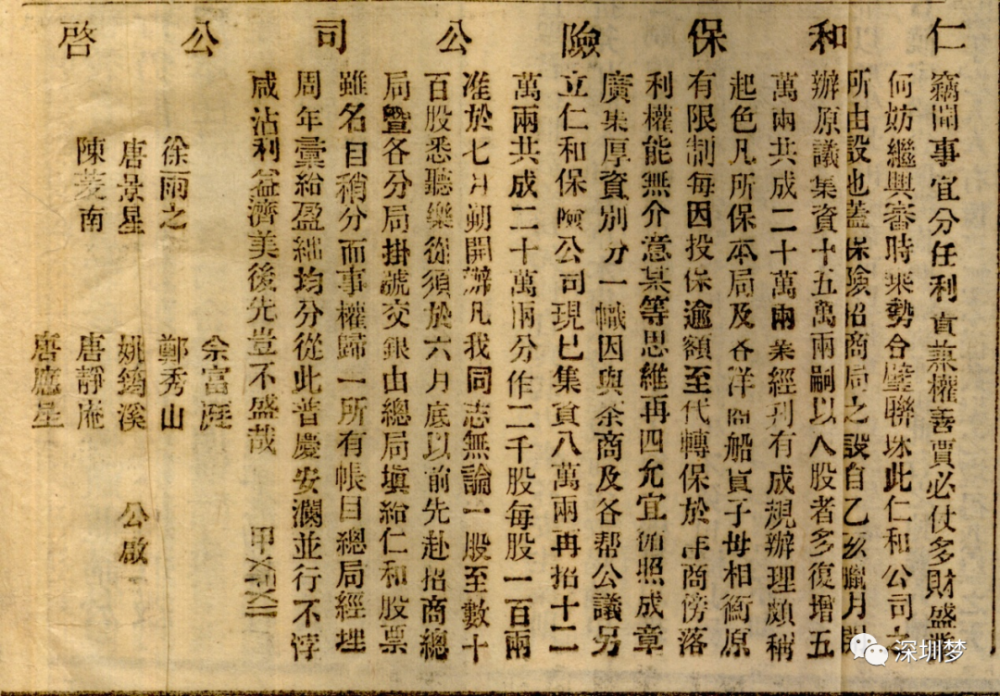 仁和保險公司公啓
竊聞事宜分任利貴兼權善賈必仗多財盛
何妨繼興審時乘勢合璧聯珠此仁和公司之
所由設也蓋保險招商局之設自乙亥臘月開
辦原議集資十五萬兩嗣以入股者多復增五
萬兩共成二十萬兩業經刊有成規辦理頗稱
起色凡所保本局及各洋商船貨子母相衡原
有限制每因投保逾額至代轉保於洋商傍落
利權能無介意某等思維再四允宜循照成章
廣集厚資別分一幟因與茶商及各帮公議另
立仁和保險公司現已集資八萬兩再招十二
萬兩共成二十萬兩分作二千股每股一百兩
准於七月朔開辦凡我同志無論一股至數十
百股悉聽樂從須於六月底以前先赴招商總
局暨各分局掛號交銀由總局填給仁和股票
雖名目稍分而事權歸一所有帳目總局經理
周年彙給盈絀均分從此普慶安瀾並行不悖
咸沾利益濟美後先豈不盛哉 甲
余富庭
徐雨之 鄭秀山
唐景星 姚鎢溪 公啟
陳菱南 唐靜庵
唐應星
深圳梦